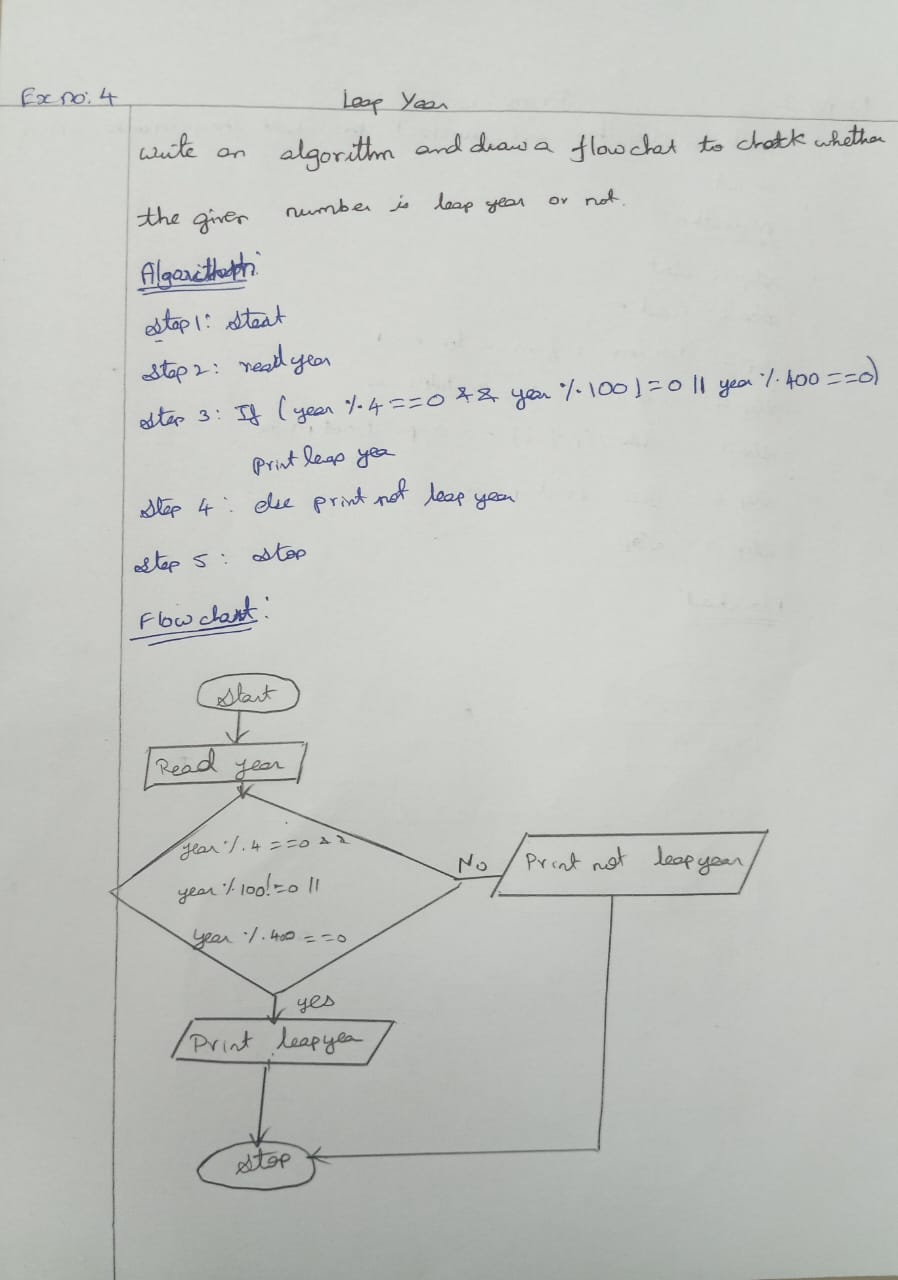 Ex no: 4
Leap Year
write an algorithm and draw a flow chat to chack whether
the given number is leap year or not.
Step 1: Start
Step 2: read year
Step 3: If (year % 4 == 0 && year % 100 != 0 || year % 400 == 0)
Print leap yea
Step 4: else print not leap year
Step 5: stop
Flow chart:
Start
Read year
year % 4 == 0 &&
year % 100 != 0 ||
year % 400 == 0
No
Print not leap year
yes
Print leap yea
Stop